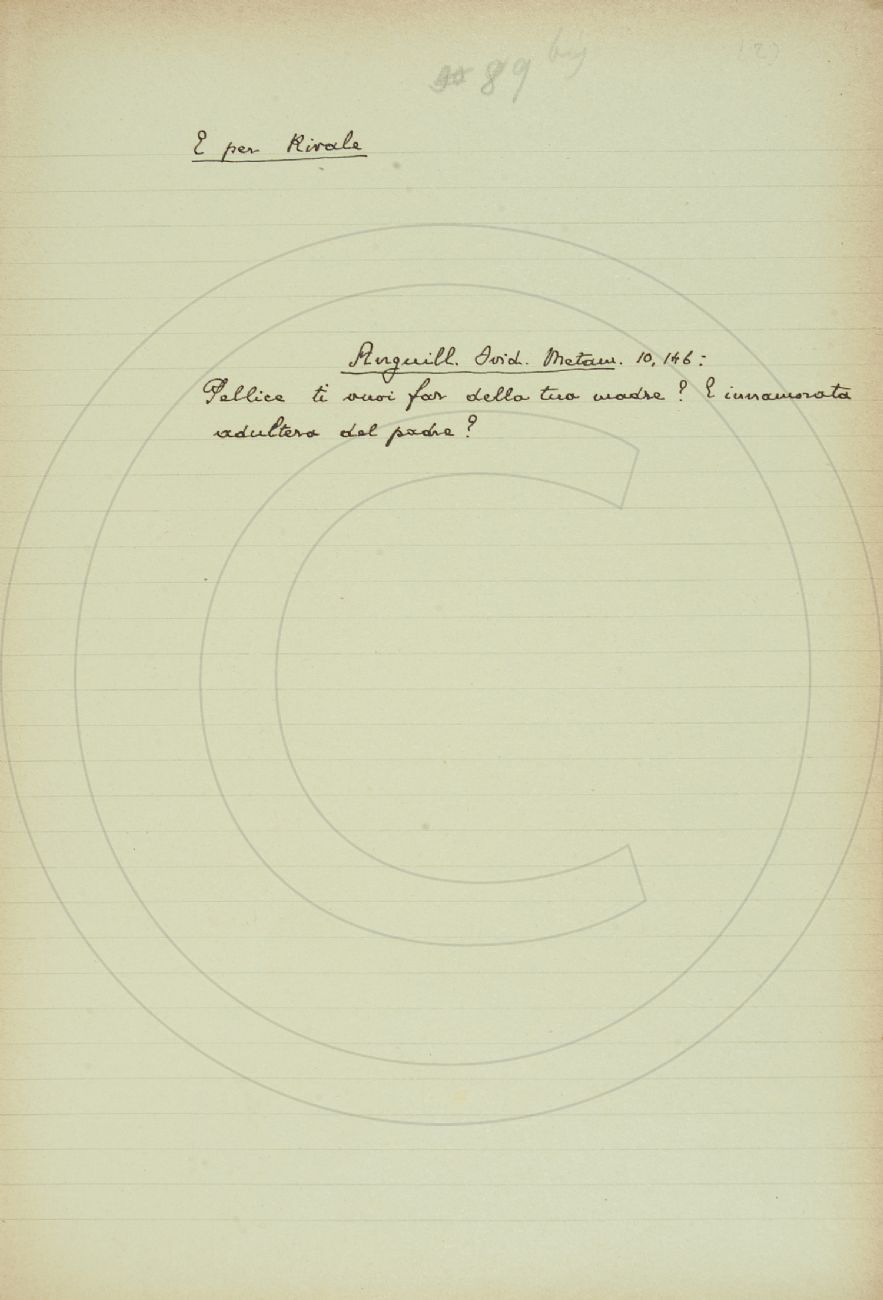 89 bis
(2)
E per Rivale
Anguill. Ovid. Metam. 10, 146:
Pellice ti vuoi far della tua madre? E innamorata
adultera del padre?